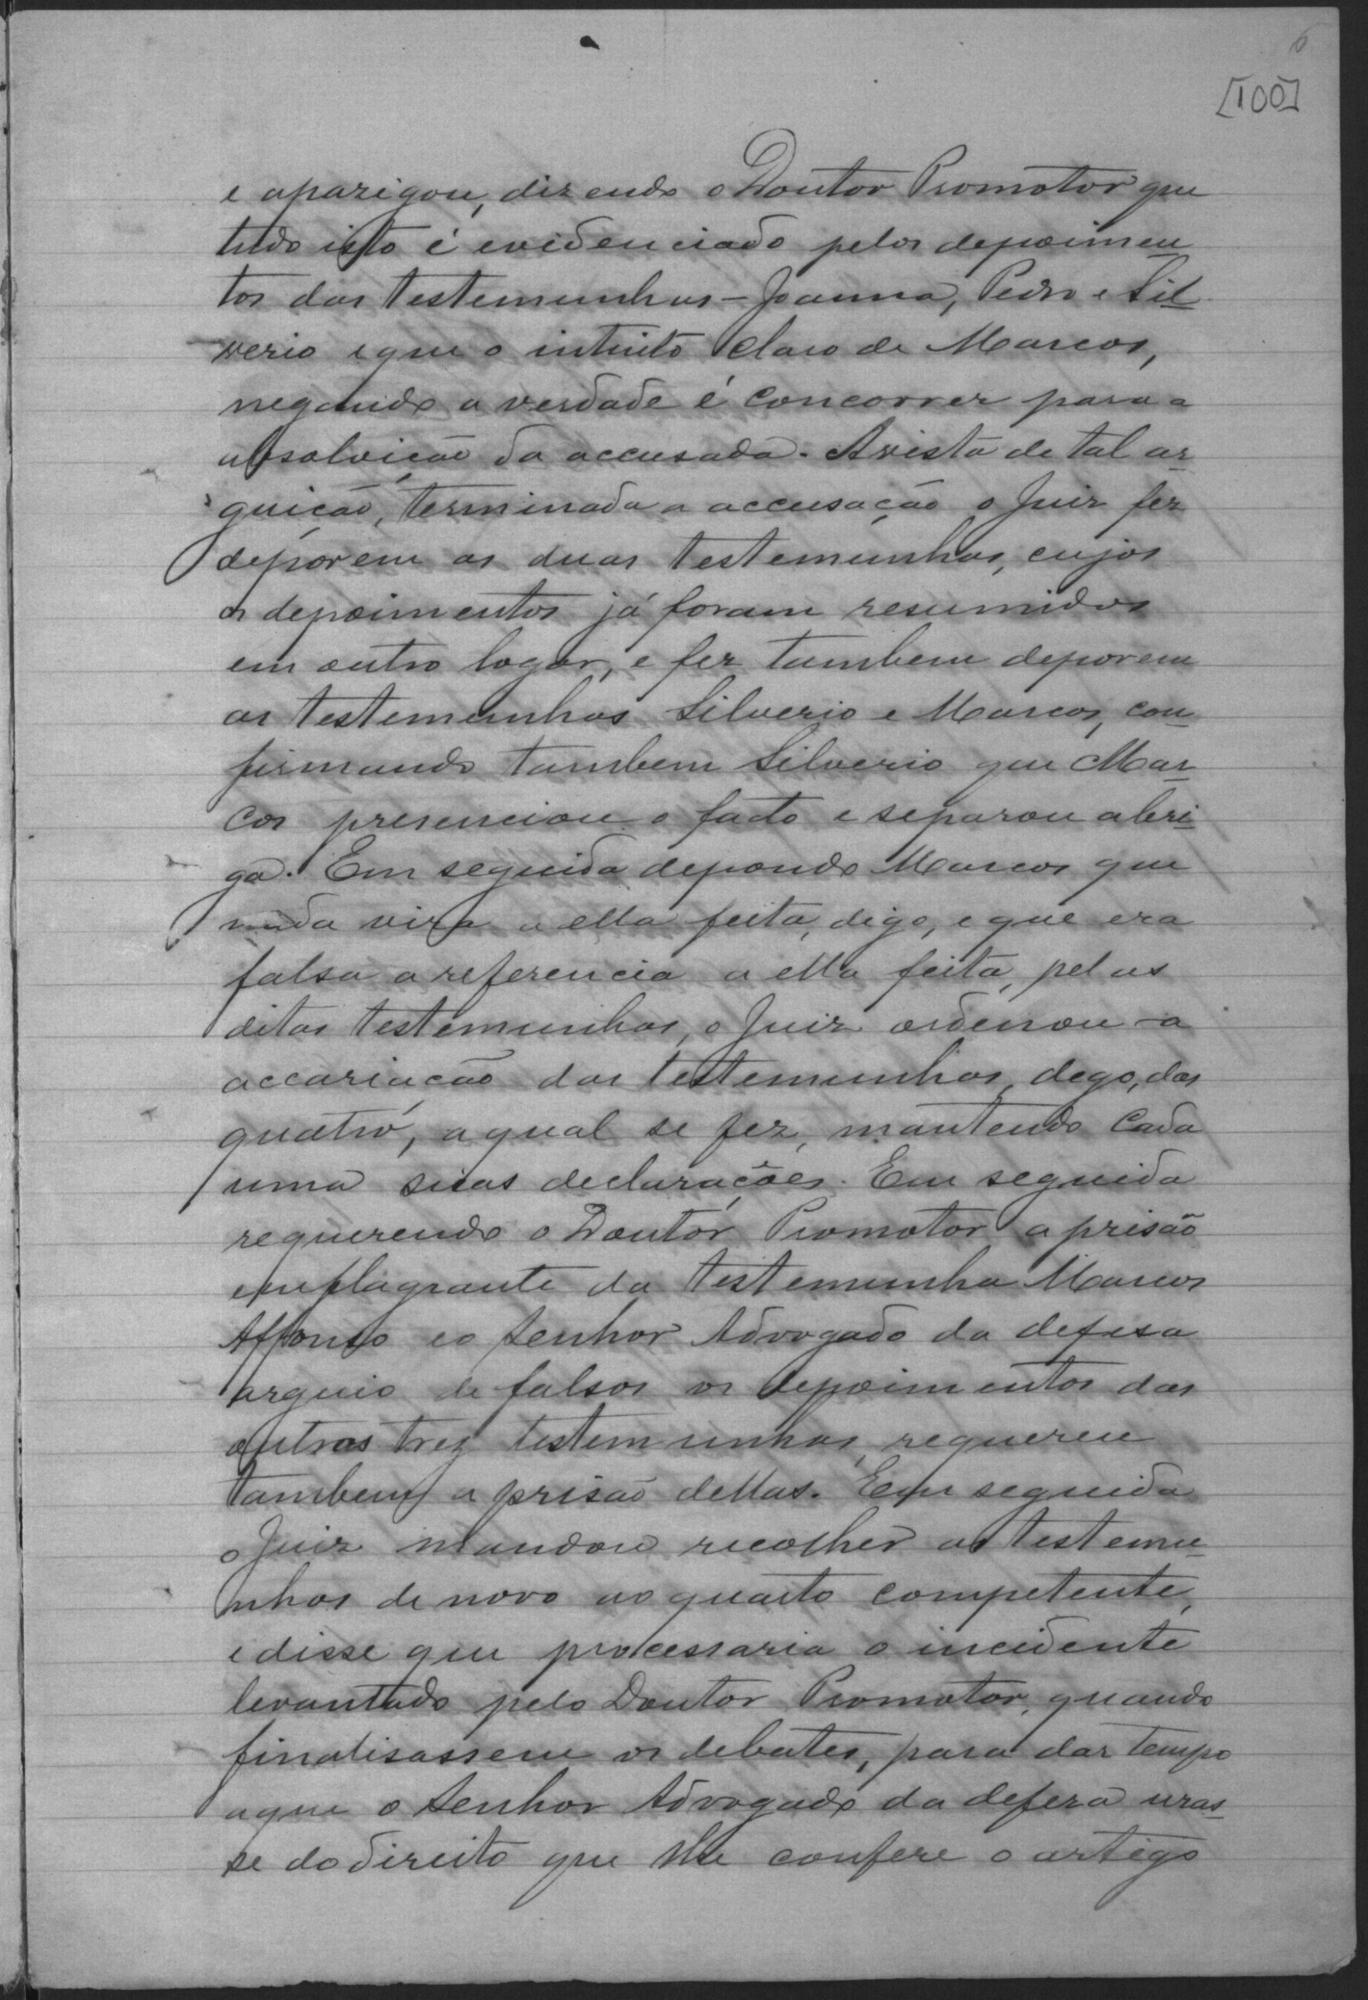 6
[100]
e apazigou, dizendo o Doutor Promotor que
tudo isto é evidenciado pelos depoimen
tos das testemunhas - Joanna, Pedro e Sil
verio e que o intuito claro de Marcos,
negando a verdade é concorrer para a
absolvição da accusada. Avista de tal ar
guição, terminada a accusação o Juiz fez
deporem as duas testemunhas, cujos
os depoimentos já foram resumidos
em outro logar, e fez tambem deporem
as testemunhas Silverio e Marcos, con
firmando tambem Silverio que Mar
cos presenciou o facto e separou a bri
ga. Em seguida depondo Marcos que
nada vira a ella feita, digo, e que era
falsa a referencia a ella feita, pelas
ditas testemunhas, o Juiz ordenou a
accariação das testemunhas, dego, das
quatro, a qual se fez, mantendo cada
uma suas declarações. Em seguida
requerendo o Doutor Promotor a prisão
em flagrante da testemunha Marcos
Affonso e o Senhor Advogado da defesa
arguio de falsos os depoimentos das
outras trez testemunhas, requereu
tambem a prisão dellas. Em seguida
o Juiz mandou recolher as testemu
nhas de novo ao quarto competente,
e disse que processaria o incidente
levantado pelo Doutor Promotor, quando
finalisassem os debates, para dar tempo
a que o Senhor Advogado da defeza uzas
se do direito que lhe confere o artigo